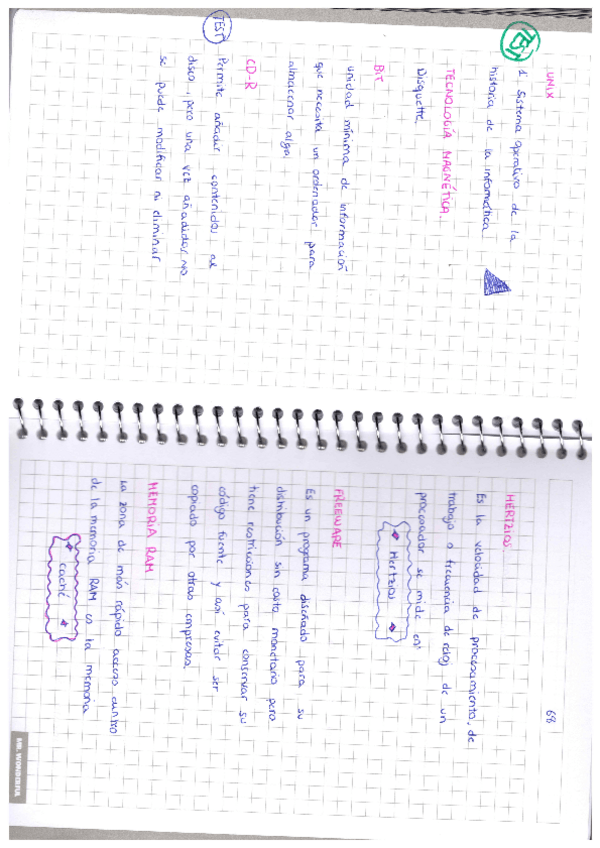 UNIX
TEST
1 Sistema operativo de la
historia de la informática
TECNOLOGÍA MAGNÉTICA.
Disquette.
BIT
unidad mínima de información
que necesita un ordenador para
almacenar algo.
CD-R
TEST
Permite añadir contenidos al
disco, pero una vez añadidos no
se puede modificar ni eliminar
68
HERTZIOS.
Es la velocidad de procesamiento, de
trabajo o frecuencia de reloj de un
procesador se mide en
Hertzios
FREEWARE
Es un programa diseñado para su
distribución sin costo monetario pero
tiene restricciones para conservar su
código fuente y así evitar ser
copiado por otras empresas
MEMORIA RAM
La zona de más rápido acceso dentro
de la memoria RAM es la memoria
caché
MR. WONDERFUL